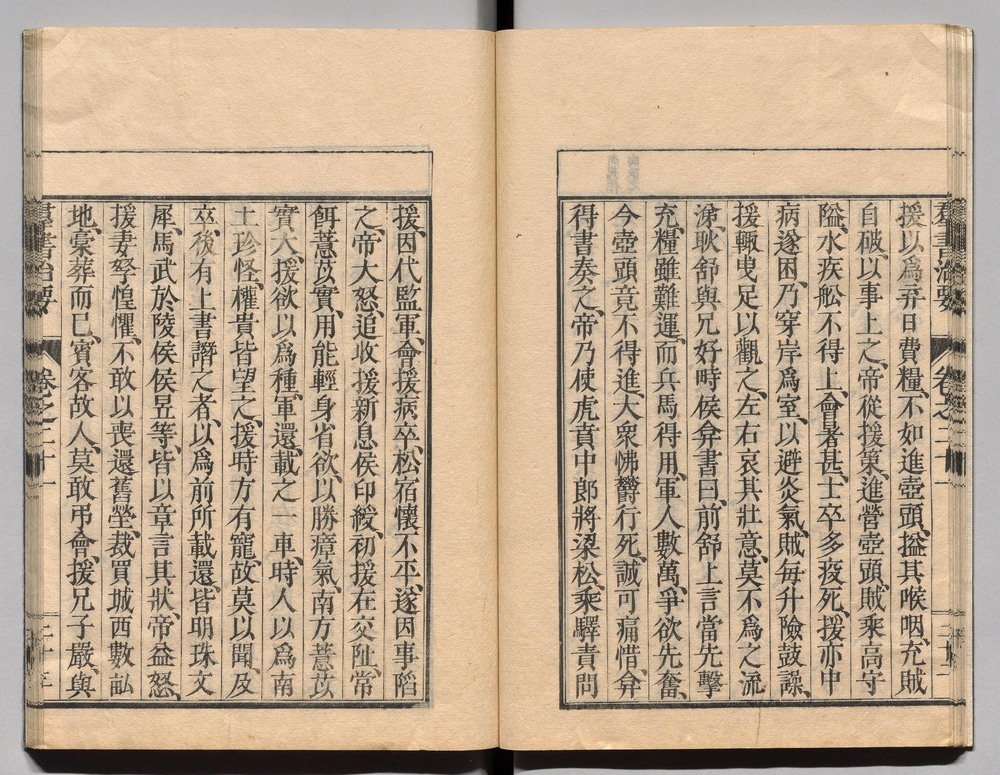 援以爲弃日費糧、不如進壺頭、搤其喉咽、充賊
自破、以事上之、帝從援策、進營壺頭、賊乘高守
隘、水疾舩不得上、會暑甚、士卒多疫死、援亦中
病、遂困、乃穿岸爲室、以避炎氣、賊每升險鼓譟、
援輙曳足以觀之、左右哀其壯意、莫不爲之流
涕、耿舒與兄好畤侯弇書曰、前舒上言當先擊
充、糧雖難運、而兵馬得用、軍人數萬、爭欲先奮、
今壺頭竟不得進、大衆怫欝行死、誠可痛惜、弇
得書奏之、帝乃使虎賁中郎將梁松、乘驛責問
援、因代監軍、會援病卒、松宿懷不平、遂因事陷
之、帝大怒、追收援新息侯印綬、初援在交阯、常
餌薏苡實、用能輕身省欲、以勝瘴氣、南方薏苡
實大、援欲以爲種、軍還、載之一車、時人以爲南
土珍怪、權貴皆望之、援時方有寵、故莫以聞、及
卒、後有上書譖之者、以爲前所載還、皆明珠文
犀、馬武於陵侯侯昱等、皆以章言其狀、帝益怒、
援妻孥惶懼、不敢以喪還舊塋、裁買城西數畝
地、槀葬而已、賓客故人、莫敢弔會、援兄子嚴與
羣書治要
卷之二十一